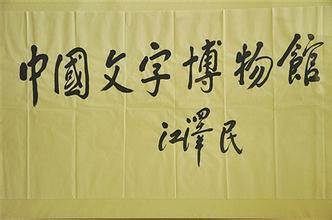 中國文字博物館
江澤民